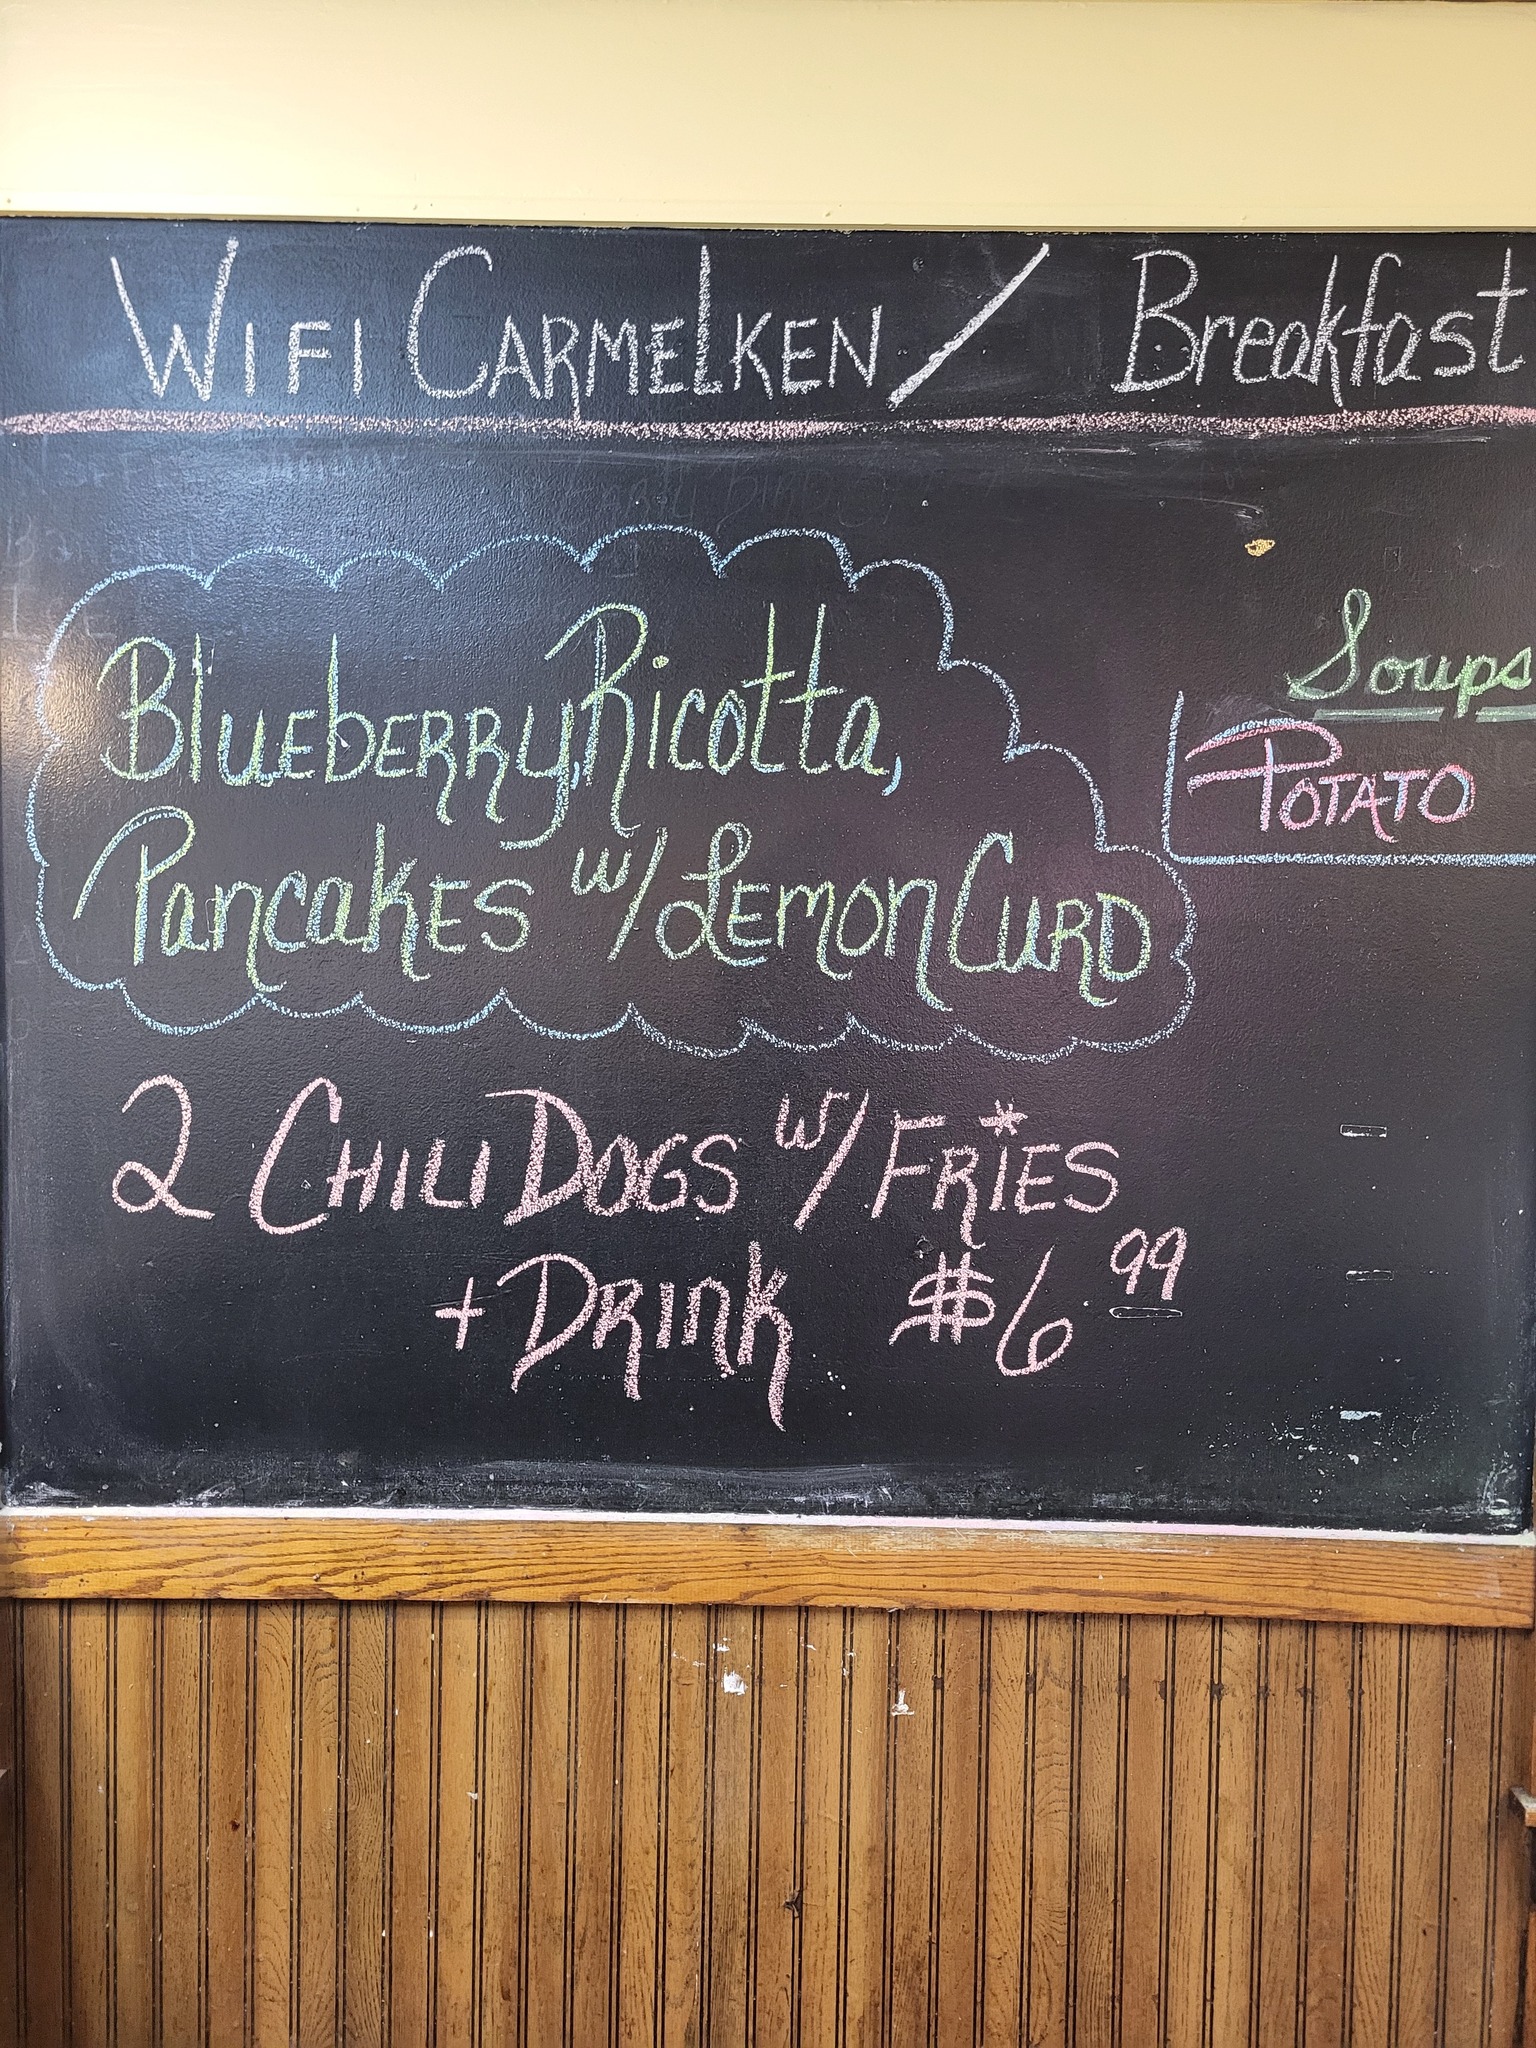 WIFI CARMELKEN / Breakfast
Blueberry, Ricotta,
Pancakes w/ Lemon Curd
Soups
POTATO
2 CHILI DOGS w/ FRIES
+ DRINK $6 99